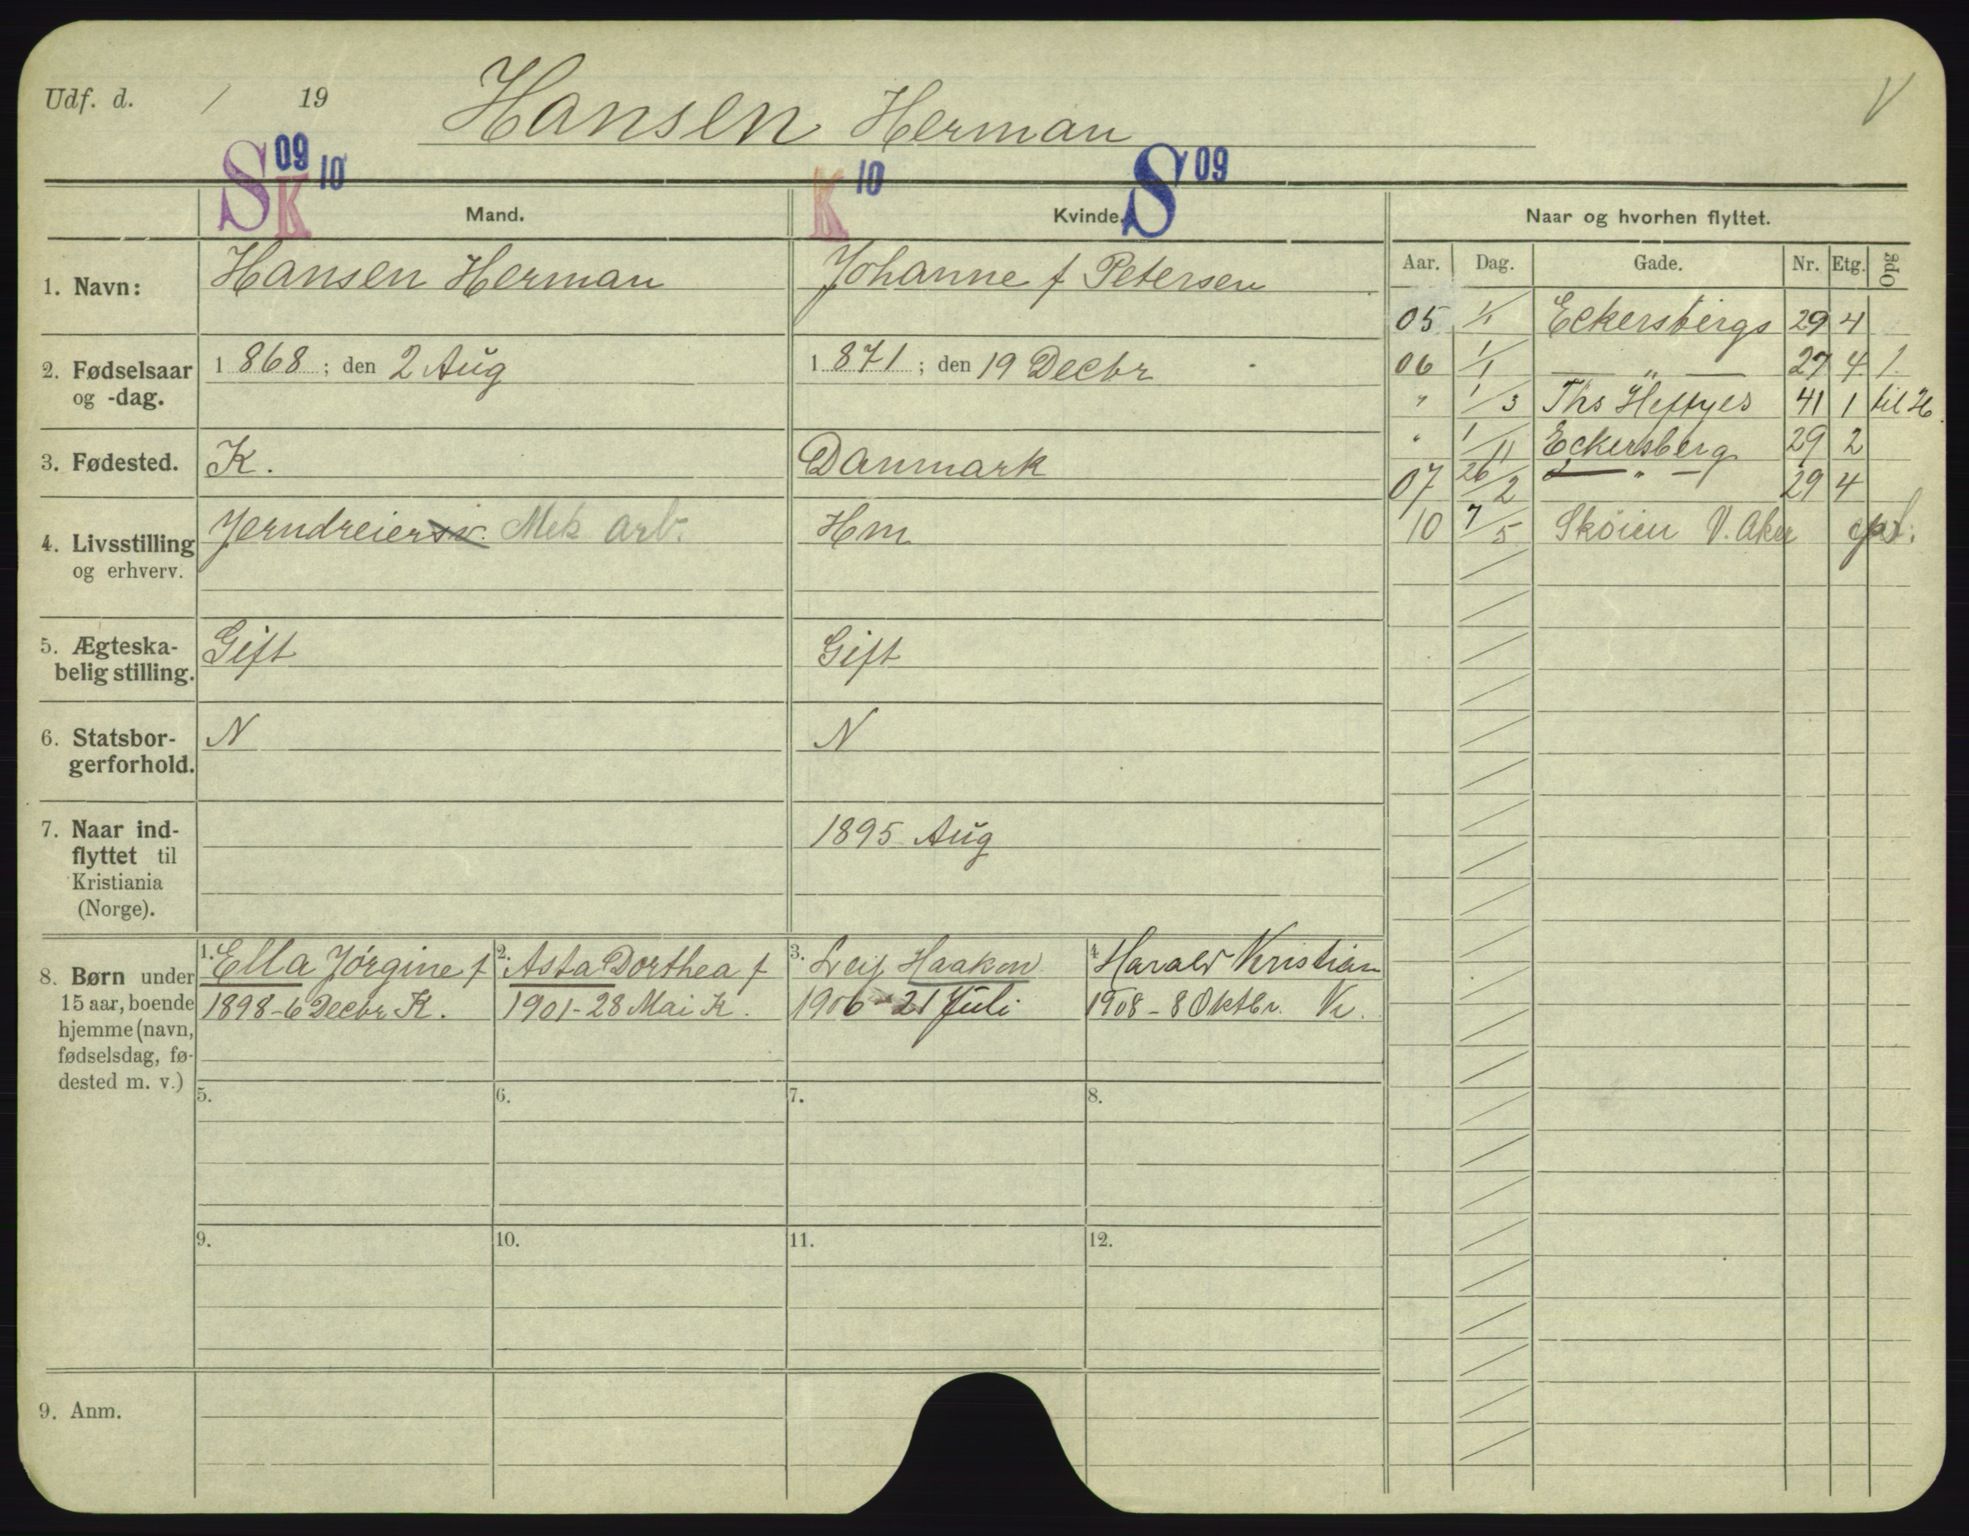 Udf. d. / 19
Hansen Herman
V
S 09 K 10
K 10 S 09
Mand.
Kvinde.
Naar og hvorhen flyttet.
1. Navn:
Hansen Herman
Johanne f Petersen
2. Fødselsaar og -dag.
1 868 ; den 2 Aug
1 871 ; den 19 Decbr
3. Fødested.
K.
Danmark
4. Livsstilling og erhverv.
Jerndreier Mek arb.
Hm
5. Ægteskabelig stilling.
Gift
Gift
6. Statsborgerforhold.
N
N
7. Naar indflyttet til Kristiania (Norge).
1895 Aug
8. Børn under
15 aar, boende
hjemme (navn,
fødselsdag, fødested m. v.)
1. Ella Jørgine f
1898-6 Decbr K.
2. Asta Dorthea f
1901-28 Mai K.
3. Leif Haakon
1906-21 Juli
4. Harald Kristian
1908-8 Oktbr. Kr.
5. 6. 7. 8.
9. 10. 11. 12.
9. Anm.
Aar. Dag. Gade. Nr. Etg. Opg
05 1/1 Eckersbergs 29 4
06 1/1 — „ — 27 4 1.
" 1/3 Ths Heftyes 41 1 til H.
" 1/11 Eckersberg 29 2
07 26/2 — " — 29 4
10 7/5 Skøien V. Aker